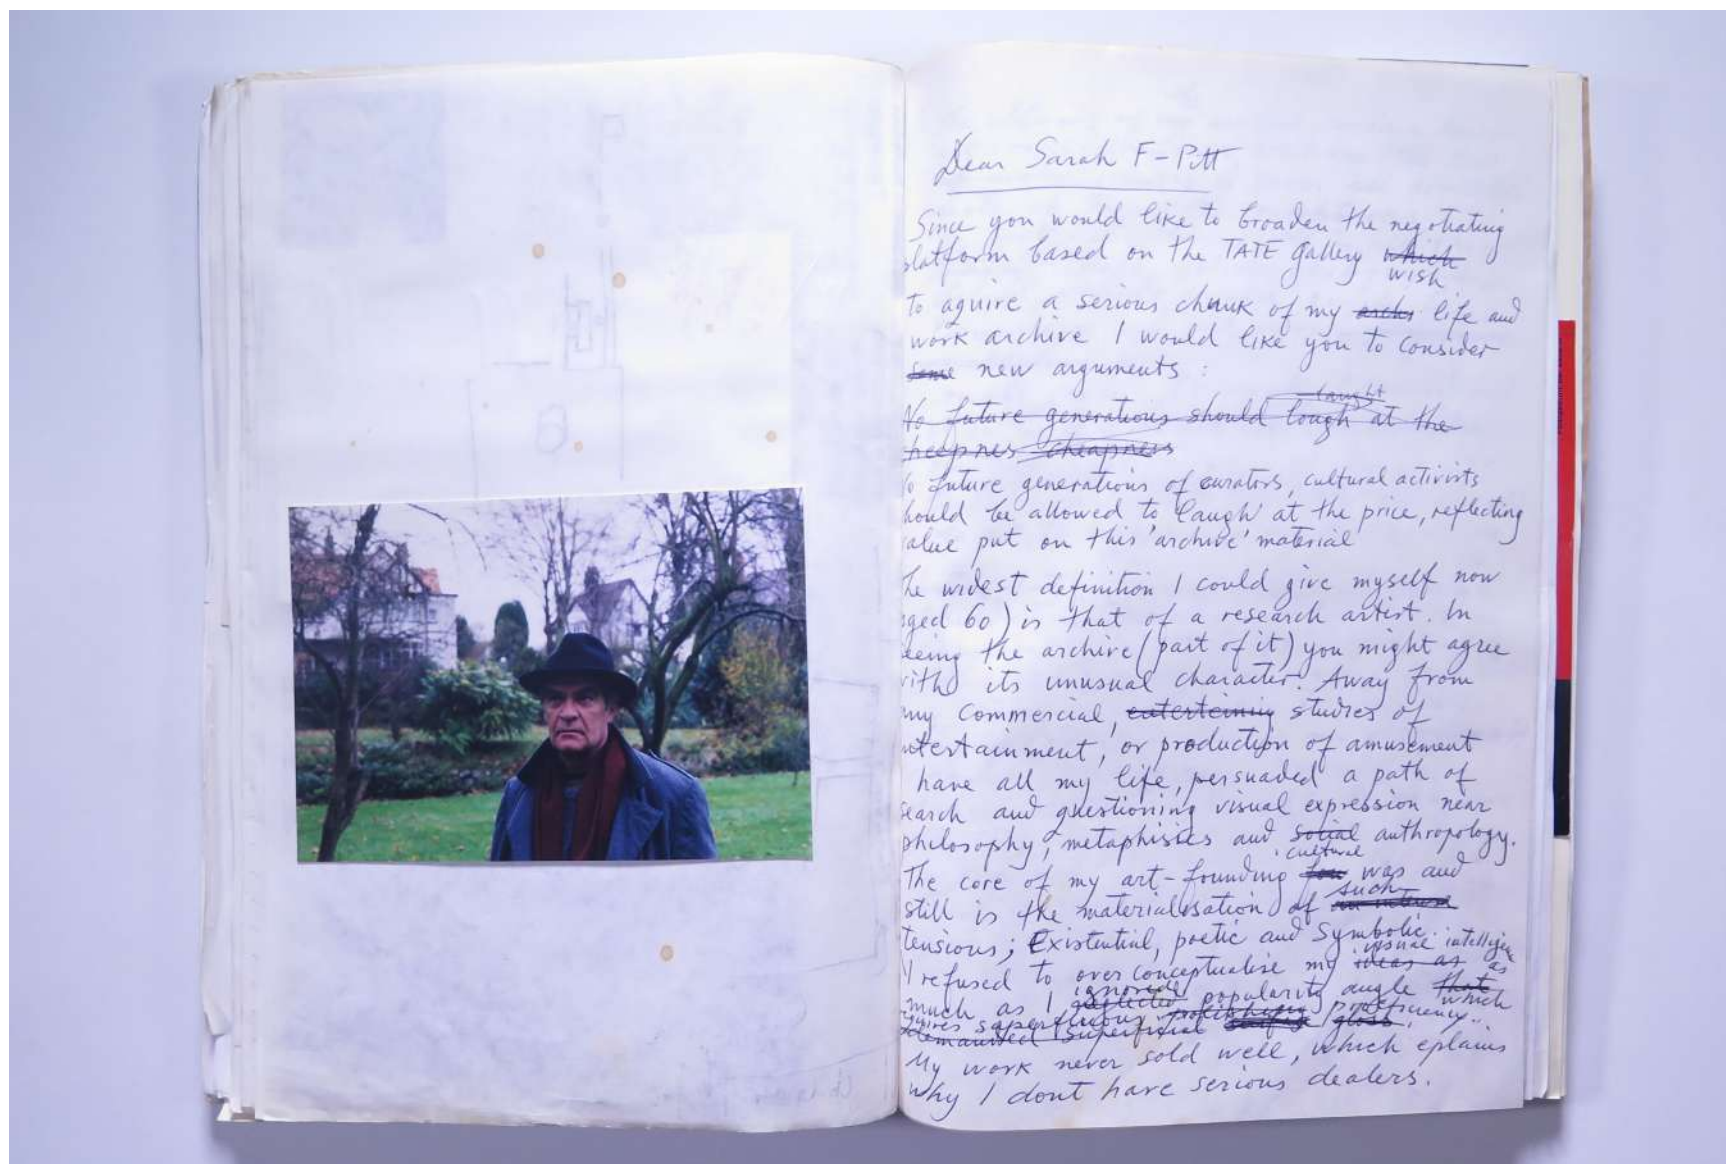 Dear Sarah F-Pitt
Since you would like to broaden the negotiating
platform based on the TATE Gallery which
wish
to aquire a serious chunk of my archs life and
work archive I would like you to consider
some new arguments :
taught
No future generations should lough at the
cheepnes cheapness
No future generations of curators, cultural activists
should be allowed to laugh at the price, reflecting
value put on this 'archive' material
The widest definition I could give myself now
(aged 60) is that of a research artist. In
seeing the archive (part of it) you might agree
with its unusual character. Away from
any commercial, enterteining studies of
entertainment, or production of amusement
I have all my life, persuaded a path of
search and questioning visual expression near
philosophy, metaphisics and social anthropology.
cultural
The core of my art-founding was and
such
still is the materialisation of
tensious; Existential, poetic and Symbolic.
visual intelligen
I refused to over conceptualise my ideas as as
ignored
much as I neglected popularity angle that
which
superfluous proficiency..
demanded superficial gloss.
My work never sold well, which eplains
why I dont have serious dealers.